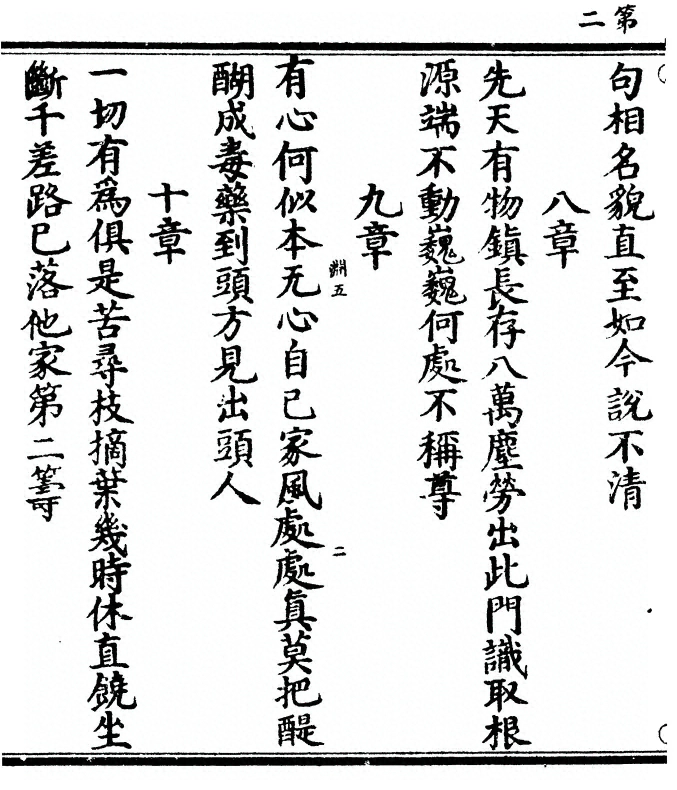 第二
句相名貌直至如今說不清
八章
先天有物鎮長存八萬塵勞出此門識取根
源端不動巍巍何處不稱尊
九章
淵五
二
有心何似本无心自己家風處處真莫把醍
醐成毒藥到頭方見出頭人
十章
一切有為俱是苦尋枝摘葉幾時休直饒坐
斷千差路已落他家第二籌